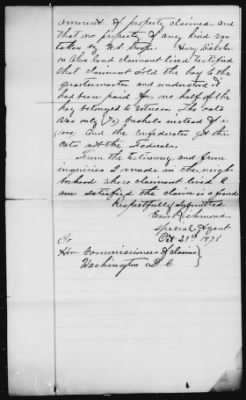 amount of property claimed and
that no property of any kind was
taken by U.S. troops. Harry
on who land claimant lived testified
that claimant sold the hay to the
quartermaster and understood it
had been paid for one half of the
hay belonged to witness. The oats
was only (70) bushels instead of
and the confederates got the
oats not the Federals.
From the testimony and from
inquiries I made in the neigh
borhood where claimant lived I
am satisfied the claim is a fraud
Respectfully submitted
Richmond
Special Agent
Oct 29th 187
To
Hon Commissioners of Claims
Washington D.C.